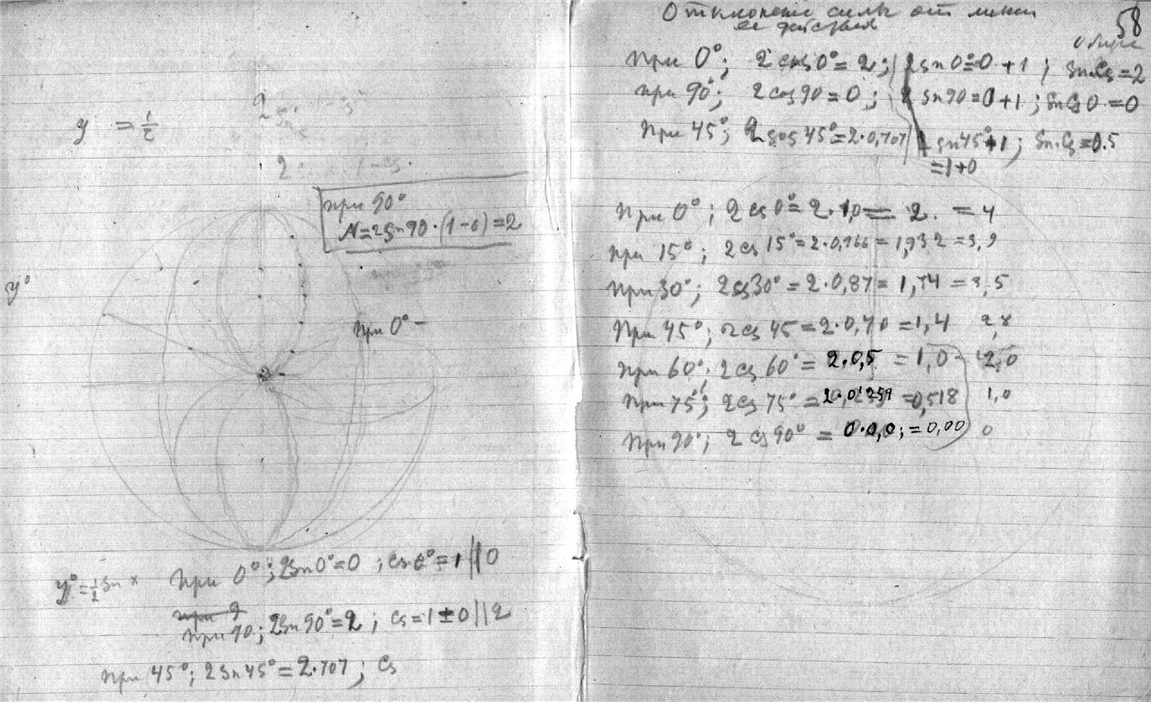 y = 1/2
2 sn
при 90°
N=2sn90·(1-0)=2
y°
при 0° -
y°=1/2 sn x
при 0°; 2sn0°=0; cs0°=1||0
при 9
при 90; 2sn90°=2; cs=1±0||2
при 45°; 2sn45°=2·707; cs
58
Отклонение силы от линии
ее действия
при 0°; 2cos0°=2; 2sn0=0+1; sn.cs=2
при 90°; 2cos90=0; 2sn90=0+1; sncs0=0
при 45°; 2cos45°=2·0,707 2sn45°+1; sn.cs=0.5
=1+0
при 0°; 2cs0°=2·1,0= 2. =4
при 15°; 2cs15°=2·0,966=1,932=3,9
при 30°; 2cs30°=2·0,87=1,74=3,5
при 45°; 2cs45=2·0,70=1,4 2,8
при 60°. 2cs60°=2.0,5=1,0- 2,0
при 75°; 2cs75°=2·0,259=0,518 1,0
при 90°; 2cs90°=0·0,0;=0,00 0